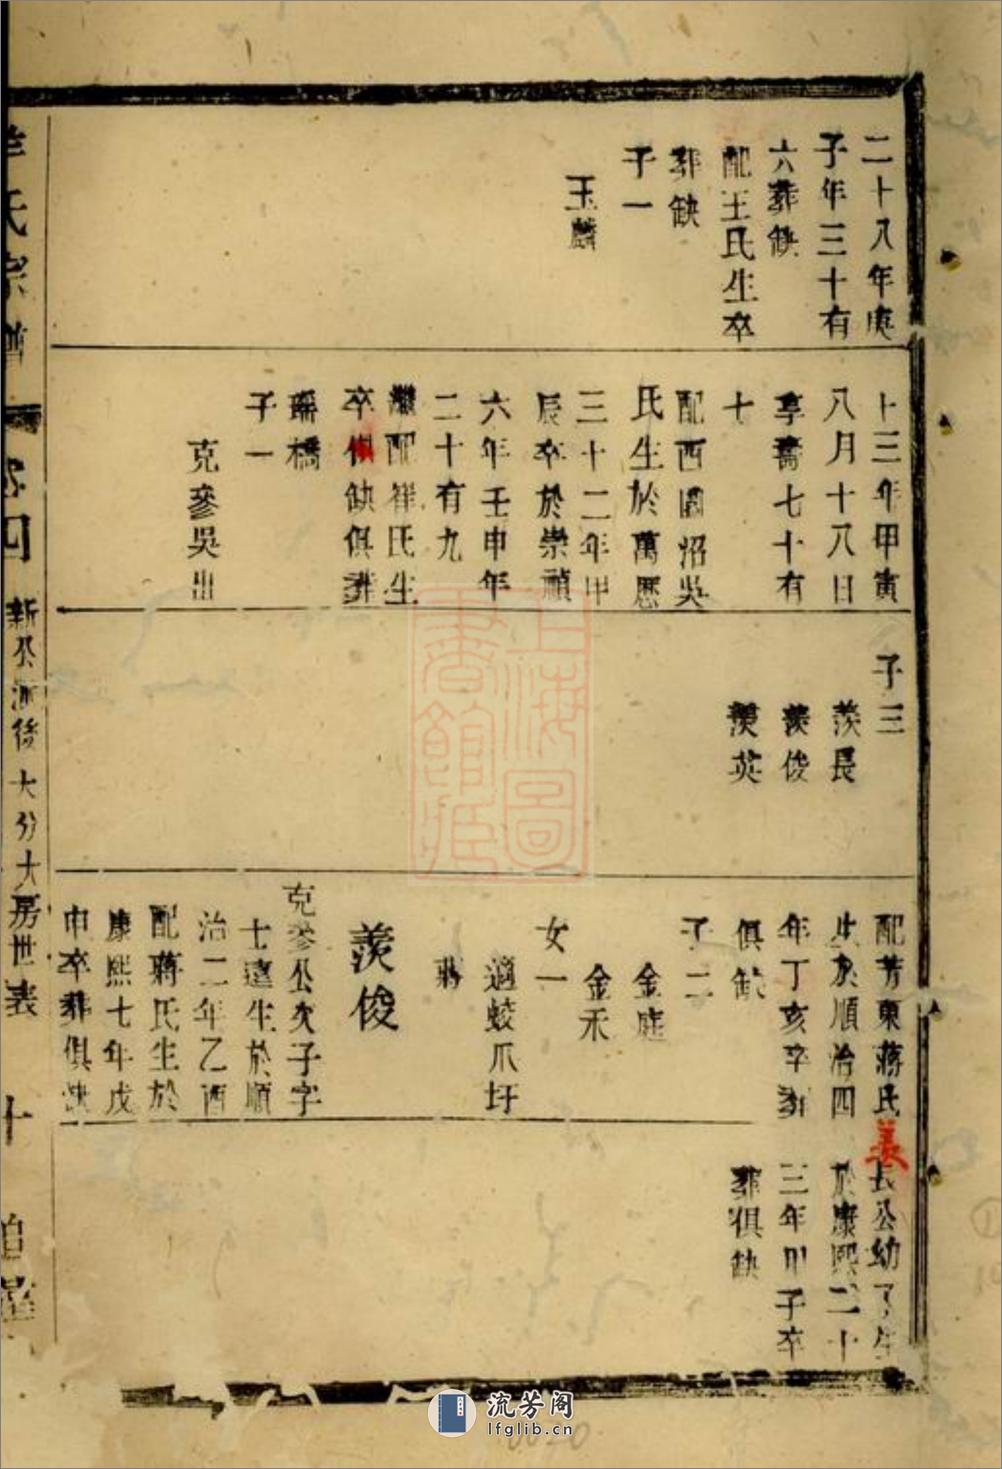 二十八年庚
子年三十有
六葬缺
配王氏生卒
葬缺
子一
玉麟
十三年甲寅
八月十八日
享壽七十有
七
配西園沼吳
氏生於萬歷
三十二年甲
辰卒於崇禎
六年壬申年
二十有九
繼配崔氏生
卒俱缺俱葬
瑞橋
子一
克參吳出
子三
羨長
羨俊
羨英
配芳東蔣氏
生於順治四
年丁亥卒葬
俱缺
子二
金庭
金禾
女一
適蛟爪圩
蔣
羨俊
克參公次子字
士遠生於順
治二年乙酉
配蔣氏生於
康熙七年戊
申卒葬俱缺
羨
長公幼子生
於康熙二十
三年甲子卒
葬俱缺
氏宗譜
卷四
新公派後 大分大房世表
十
上海圖
書館藏
流芳阁
lfglib.cn